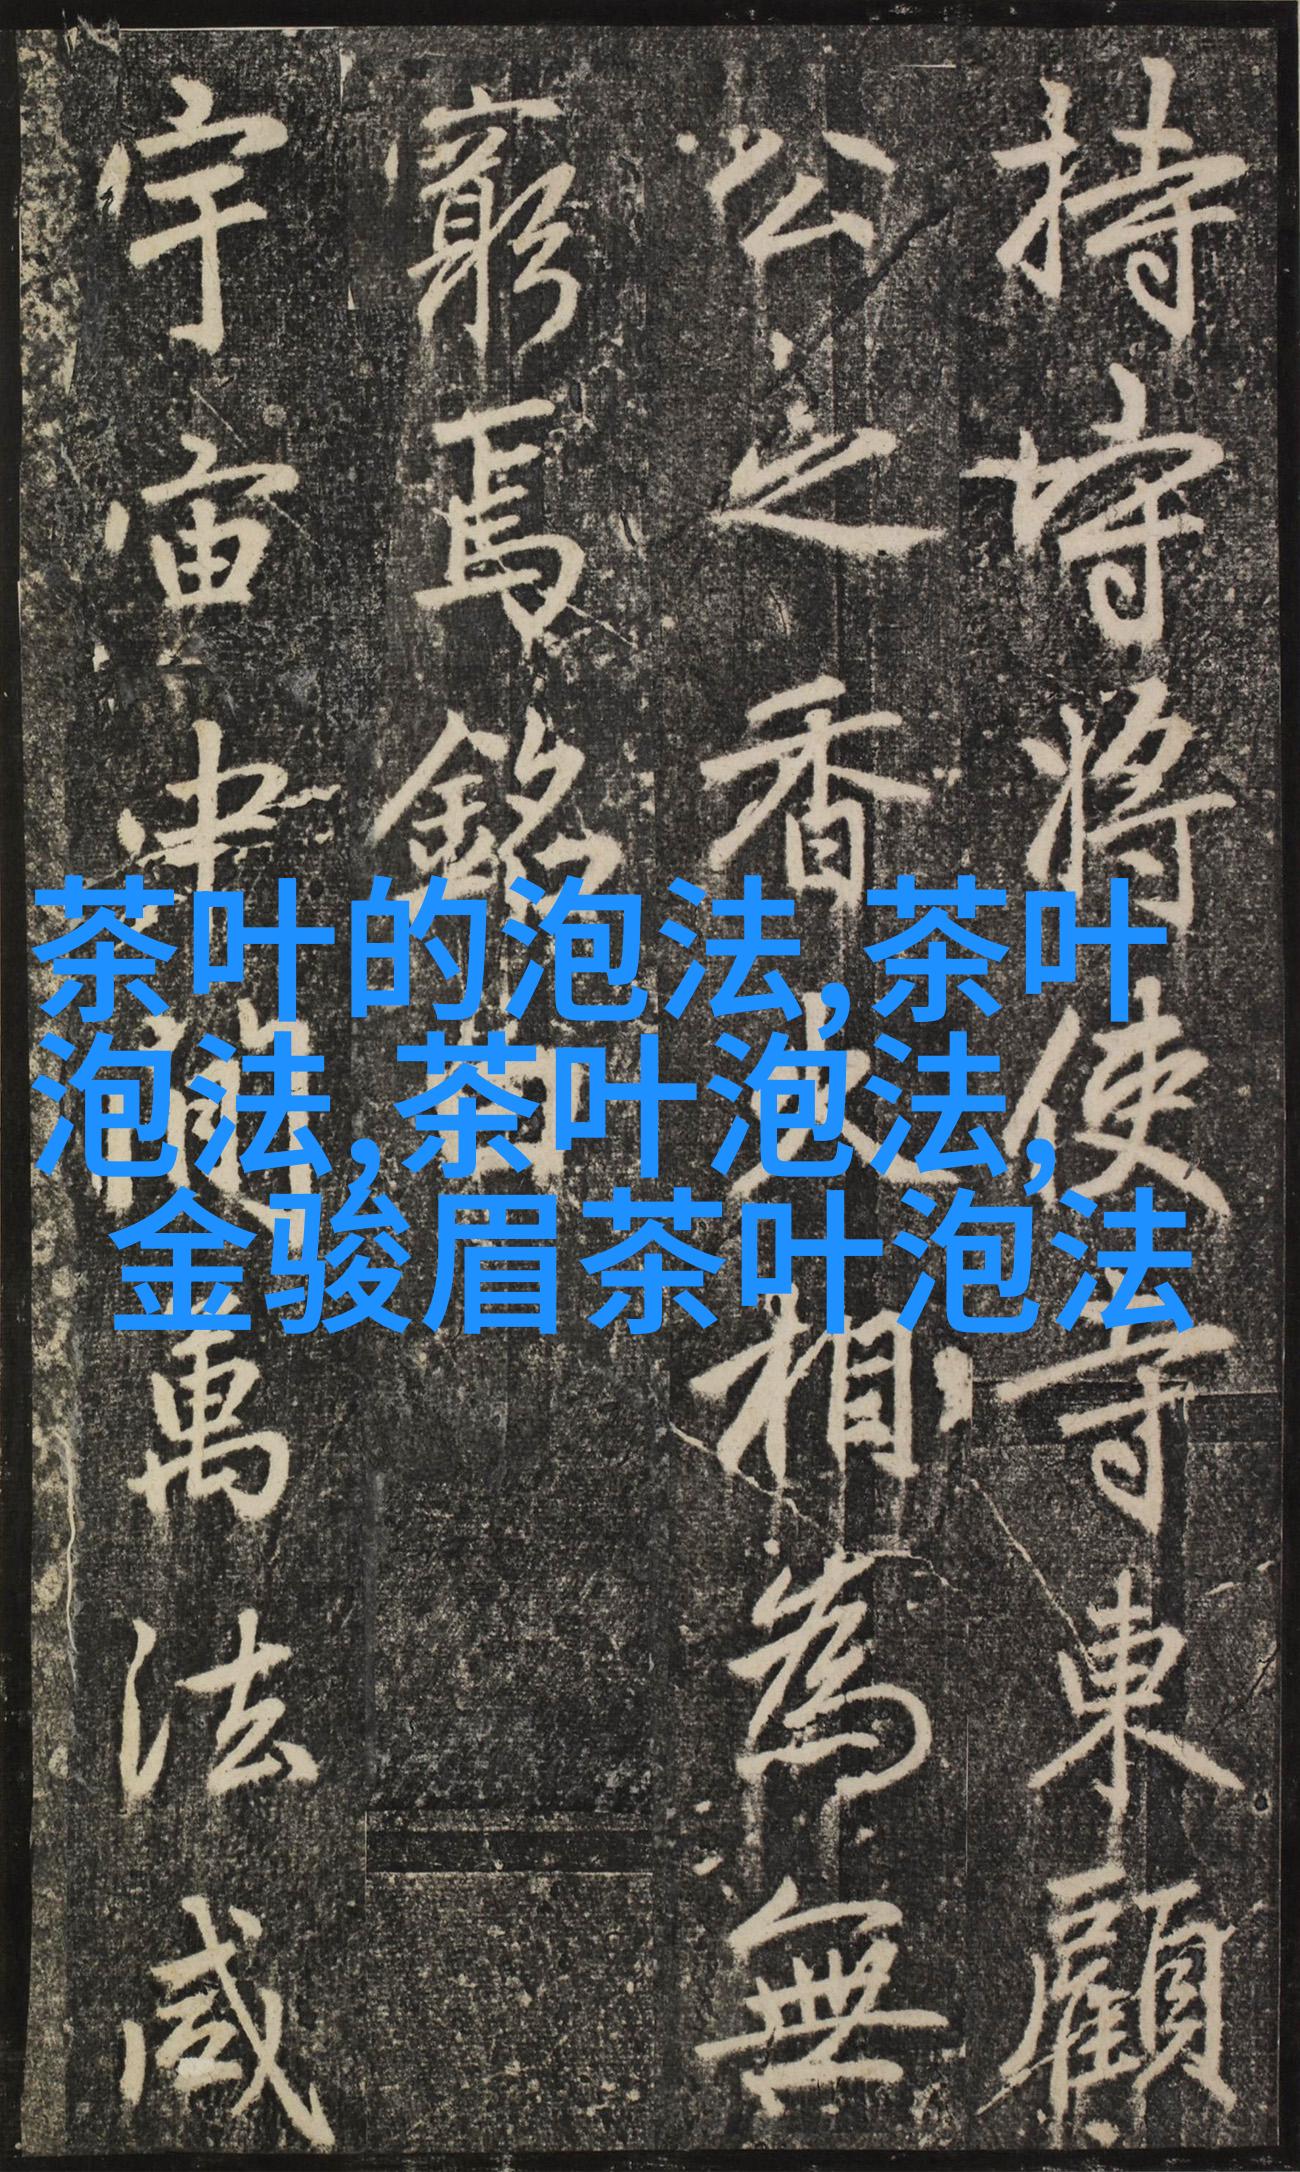 持将使寺東顧
公之香火相為無
窮焉銘曰
宇宙中間萬法咸
茶叶的泡法,茶叶
泡法,茶叶泡法,
金骏眉茶叶泡法